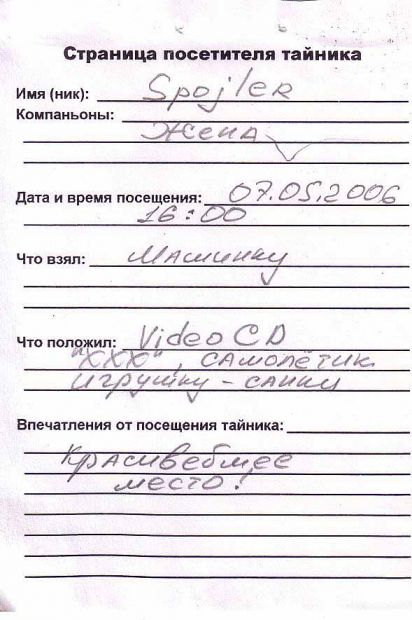 Страница посетителя тайника
Имя (ник): Spojler
Компаньоны:
Жена
Дата и время посещения: 07.05.2006
16:00
Что взял: Машинку
Что положил: Video CD
"XXX", самолётик
игрушку - санки
Впечатления от посещения тайника:
Красивебмее
место!